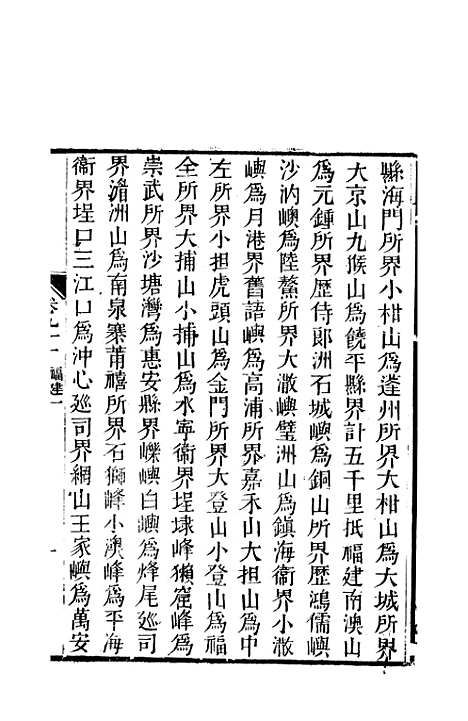 縣海門所界小柑山爲蓬州所界大柑山爲大城所界
大京山九㠋山爲饒平縣界計五千里抵福建南澳山
爲元鍾所界歷侍郞洲石城嶼爲銅山所界歷鴻儒嶼
沙汭嶼爲陸鰲所界大㵍嶼璧洲山爲鎭海衛界小㵍
嶼爲月港界舊語嶼爲高浦所界嘉禾山大担山爲中
左所界小担虎頭山爲金門所界大登山小登山爲福
全所界大捕山小捕山爲水寧衛界埕埭峰獺窟峰爲
崇武所界沙塘灣爲惠安縣界嶫嶼白嶼爲烽尾廵司
界湄洲山爲南泉寨莆禧所界石獅峰小澳峰爲平海
衛界埕口三江口爲沖心廵司界網山王家嶼爲萬安
福建一